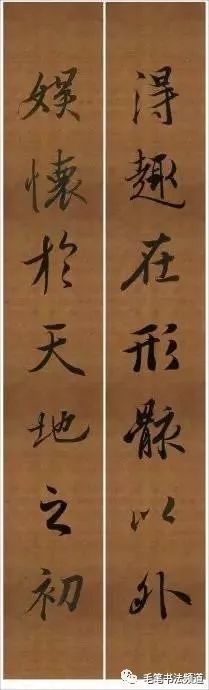 得趣在形骸以外
娱怀於天地之初
毛笔书法频道